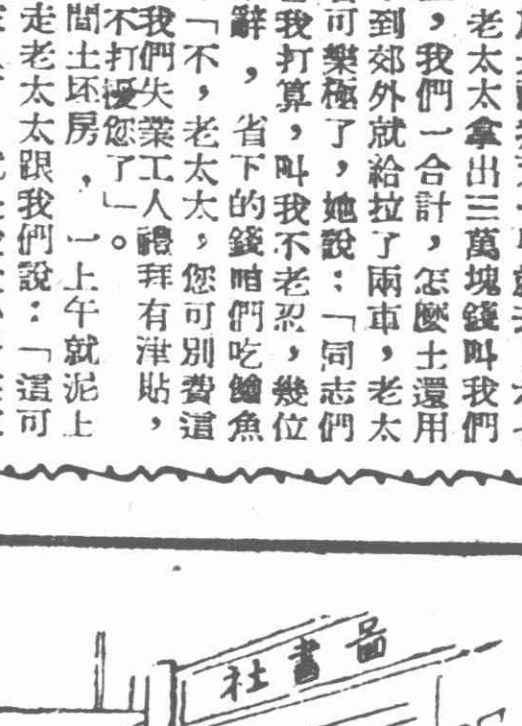 老太太拿出三萬塊錢叫我們
，我們一合計，怎麼土還用
到郊外就給拉了兩車，老太
可樂極了，她說：「同志們
我打算，叫我不老忍，幾位
辭，省下的錢咱們吃鱠魚
「不，老太太，您可別費這
我們失業工人禮拜有津貼，
不打擾您了」。
間土坯房，一上午就泥上
走老太太跟我們說：「這可
社書圖